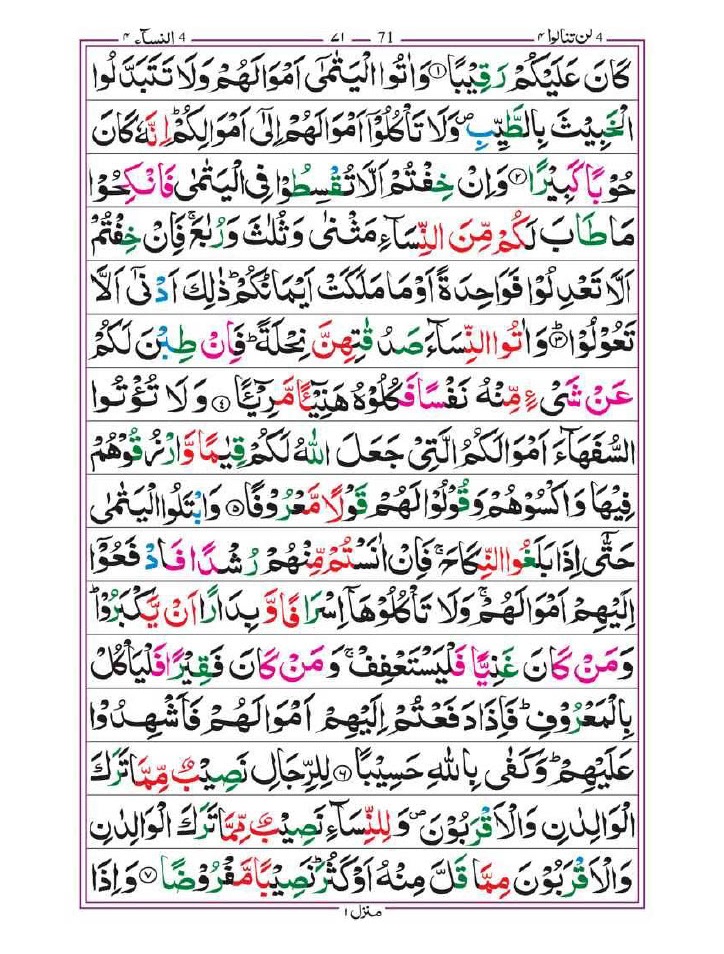 النسآء ٤ 4 ٧١ — 71 لن تنالوا ٤ 4
كَانَ عَلَيْكُمْ رَقِيْبًا ۝١ وَاٰتُوا الْيَتٰمٰٓى اَمْوَالَهُمْ وَلَا تَتَبَدَّلُوا
الْخَبِيْثَ بِالطَّيِّبِ ۪ وَلَا تَاْكُلُوْۤا اَمْوَالَهُمْ اِلٰۤى اَمْوَالِكُمْ ؕ اِنَّهٗ كَانَ
حُوْبًا كَبِيْرًا ۝٢ وَاِنْ خِفْتُمْ اَلَّا تُقْسِطُوْا فِى الْيَتٰمٰى فَانْكِحُوْا
مَا طَابَ لَكُمْ مِّنَ النِّسَآءِ مَثْنٰى وَثُلٰثَ وَرُبٰعَ ۚ فَاِنْ خِفْتُمْ
اَلَّا تَعْدِلُوْا فَوَاحِدَةً اَوْ مَا مَلَكَتْ اَيْمَانُكُمْ ؕ ذٰلِكَ اَدْنٰۤى اَلَّا
تَعُوْلُوْا ۝٣ؕ وَاٰتُوا النِّسَآءَ صَدُقٰتِهِنَّ نِحْلَةً ؕ فَاِنْ طِبْنَ لَكُمْ
عَنْ شَىْءٍ مِّنْهُ نَفْسًا فَكُلُوْهُ هَنِيْٓـًٔا مَّرِيْٓـًٔا ۝٤ وَلَا تُؤْتُوا
السُّفَهَآءَ اَمْوَالَكُمُ الَّتِىْ جَعَلَ اللّٰهُ لَكُمْ قِيٰمًا وَّارْزُقُوْهُمْ
فِيْهَا وَاكْسُوْهُمْ وَقُوْلُوْا لَهُمْ قَوْلًا مَّعْرُوْفًا ۝٥ وَابْتَلُوا الْيَتٰمٰى
حَتّٰۤى اِذَا بَلَغُوا النِّكَاحَ ۚ فَاِنْ اٰنَسْتُمْ مِّنْهُمْ رُشْدًا فَادْفَعُوْۤا
اِلَيْهِمْ اَمْوَالَهُمْ ۚ وَلَا تَاْكُلُوْهَاۤ اِسْرَافًا وَّبِدَارًا اَنْ يَّكْبَرُوْا ؕ
وَمَنْ كَانَ غَنِيًّا فَلْيَسْتَعْفِفْ ۚ وَمَنْ كَانَ فَقِيْرًا فَلْيَاْكُلْ
بِالْمَعْرُوْفِ ؕ فَاِذَا دَفَعْتُمْ اِلَيْهِمْ اَمْوَالَهُمْ فَاَشْهِدُوْا
عَلَيْهِمْ ؕ وَكَفٰى بِاللّٰهِ حَسِيْبًا ۝٦ لِلرِّجَالِ نَصِيْبٌ مِّمَّا تَرَكَ
الْوَالِدٰنِ وَالْاَقْرَبُوْنَ ۪ وَلِلنِّسَآءِ نَصِيْبٌ مِّمَّا تَرَكَ الْوَالِدٰنِ
وَالْاَقْرَبُوْنَ مِمَّا قَلَّ مِنْهُ اَوْ كَثُرَ ؕ نَصِيْبًا مَّفْرُوْضًا ۝٧ وَاِذَا
منزل ١